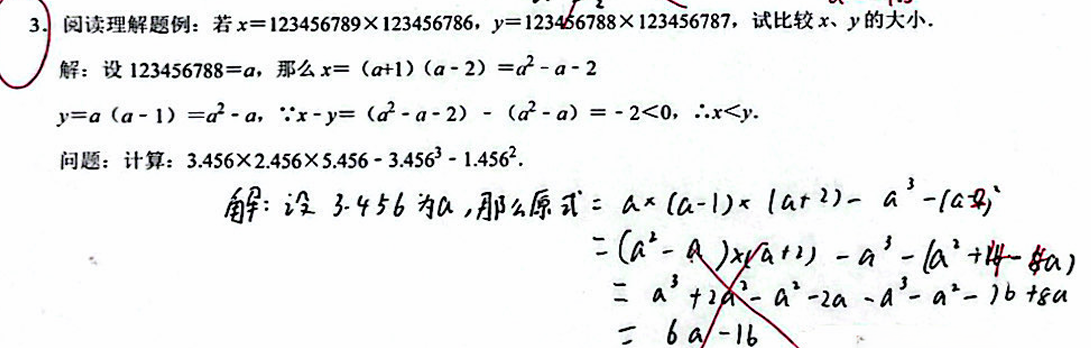 3. 阅读理解题例：若 x=123456789×123456786，y=123456788×123456787，试比较 x、y 的大小．
解：设 123456788=a，那么 x=（a+1）（a-2）=a²-a-2
y=a（a-1）=a²-a，∵x-y=（a²-a-2）-（a²-a）=-2<0，∴x<y．
问题：计算：3.456×2.456×5.456-3.456³-1.456²．
解：设 3.456 为a，那么原式= a×(a-1)×(a+2)- a³-(a-2)²
=(a²-a)×(a+2) -a³-(a²+4-4a)
= a³+2a²-a²-2a-a³-a²-16+8a
= 6a-16